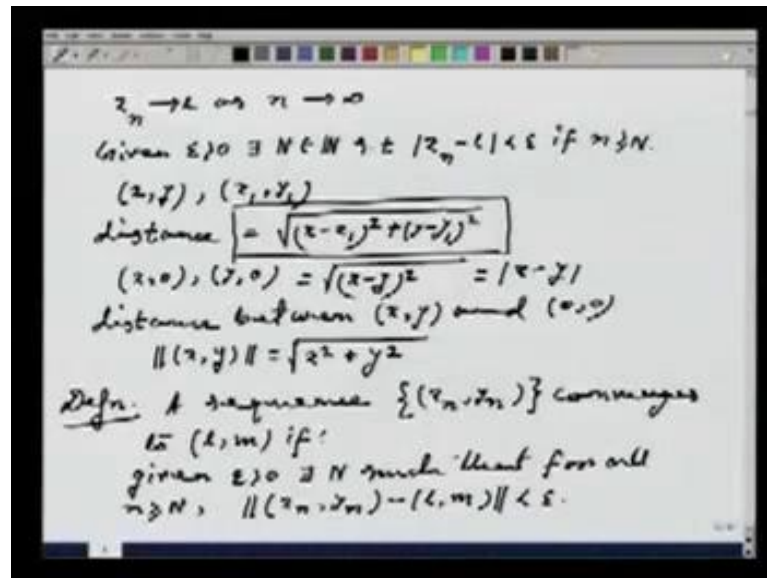 x_n → l as n → ∞
Given ε>0 ∃ N ∈ ℕ s.t |x_n - l| < ε if n ≥ N.
(x, y), (x_1, y_1)
distance = √((x-x_1)² + (y-y_1)²)
(x, 0), (y, 0) = √((x-y)²) = |x-y|
distance between (x, y) and (0, 0)
||(x, y)|| = √(x² + y²)
Defn. A sequence {(x_n, y_n)} converges
to (l, m) if:
given ε>0 ∃ N such that for all
n ≥ N, ||(x_n, y_n) - (l, m)|| < ε.